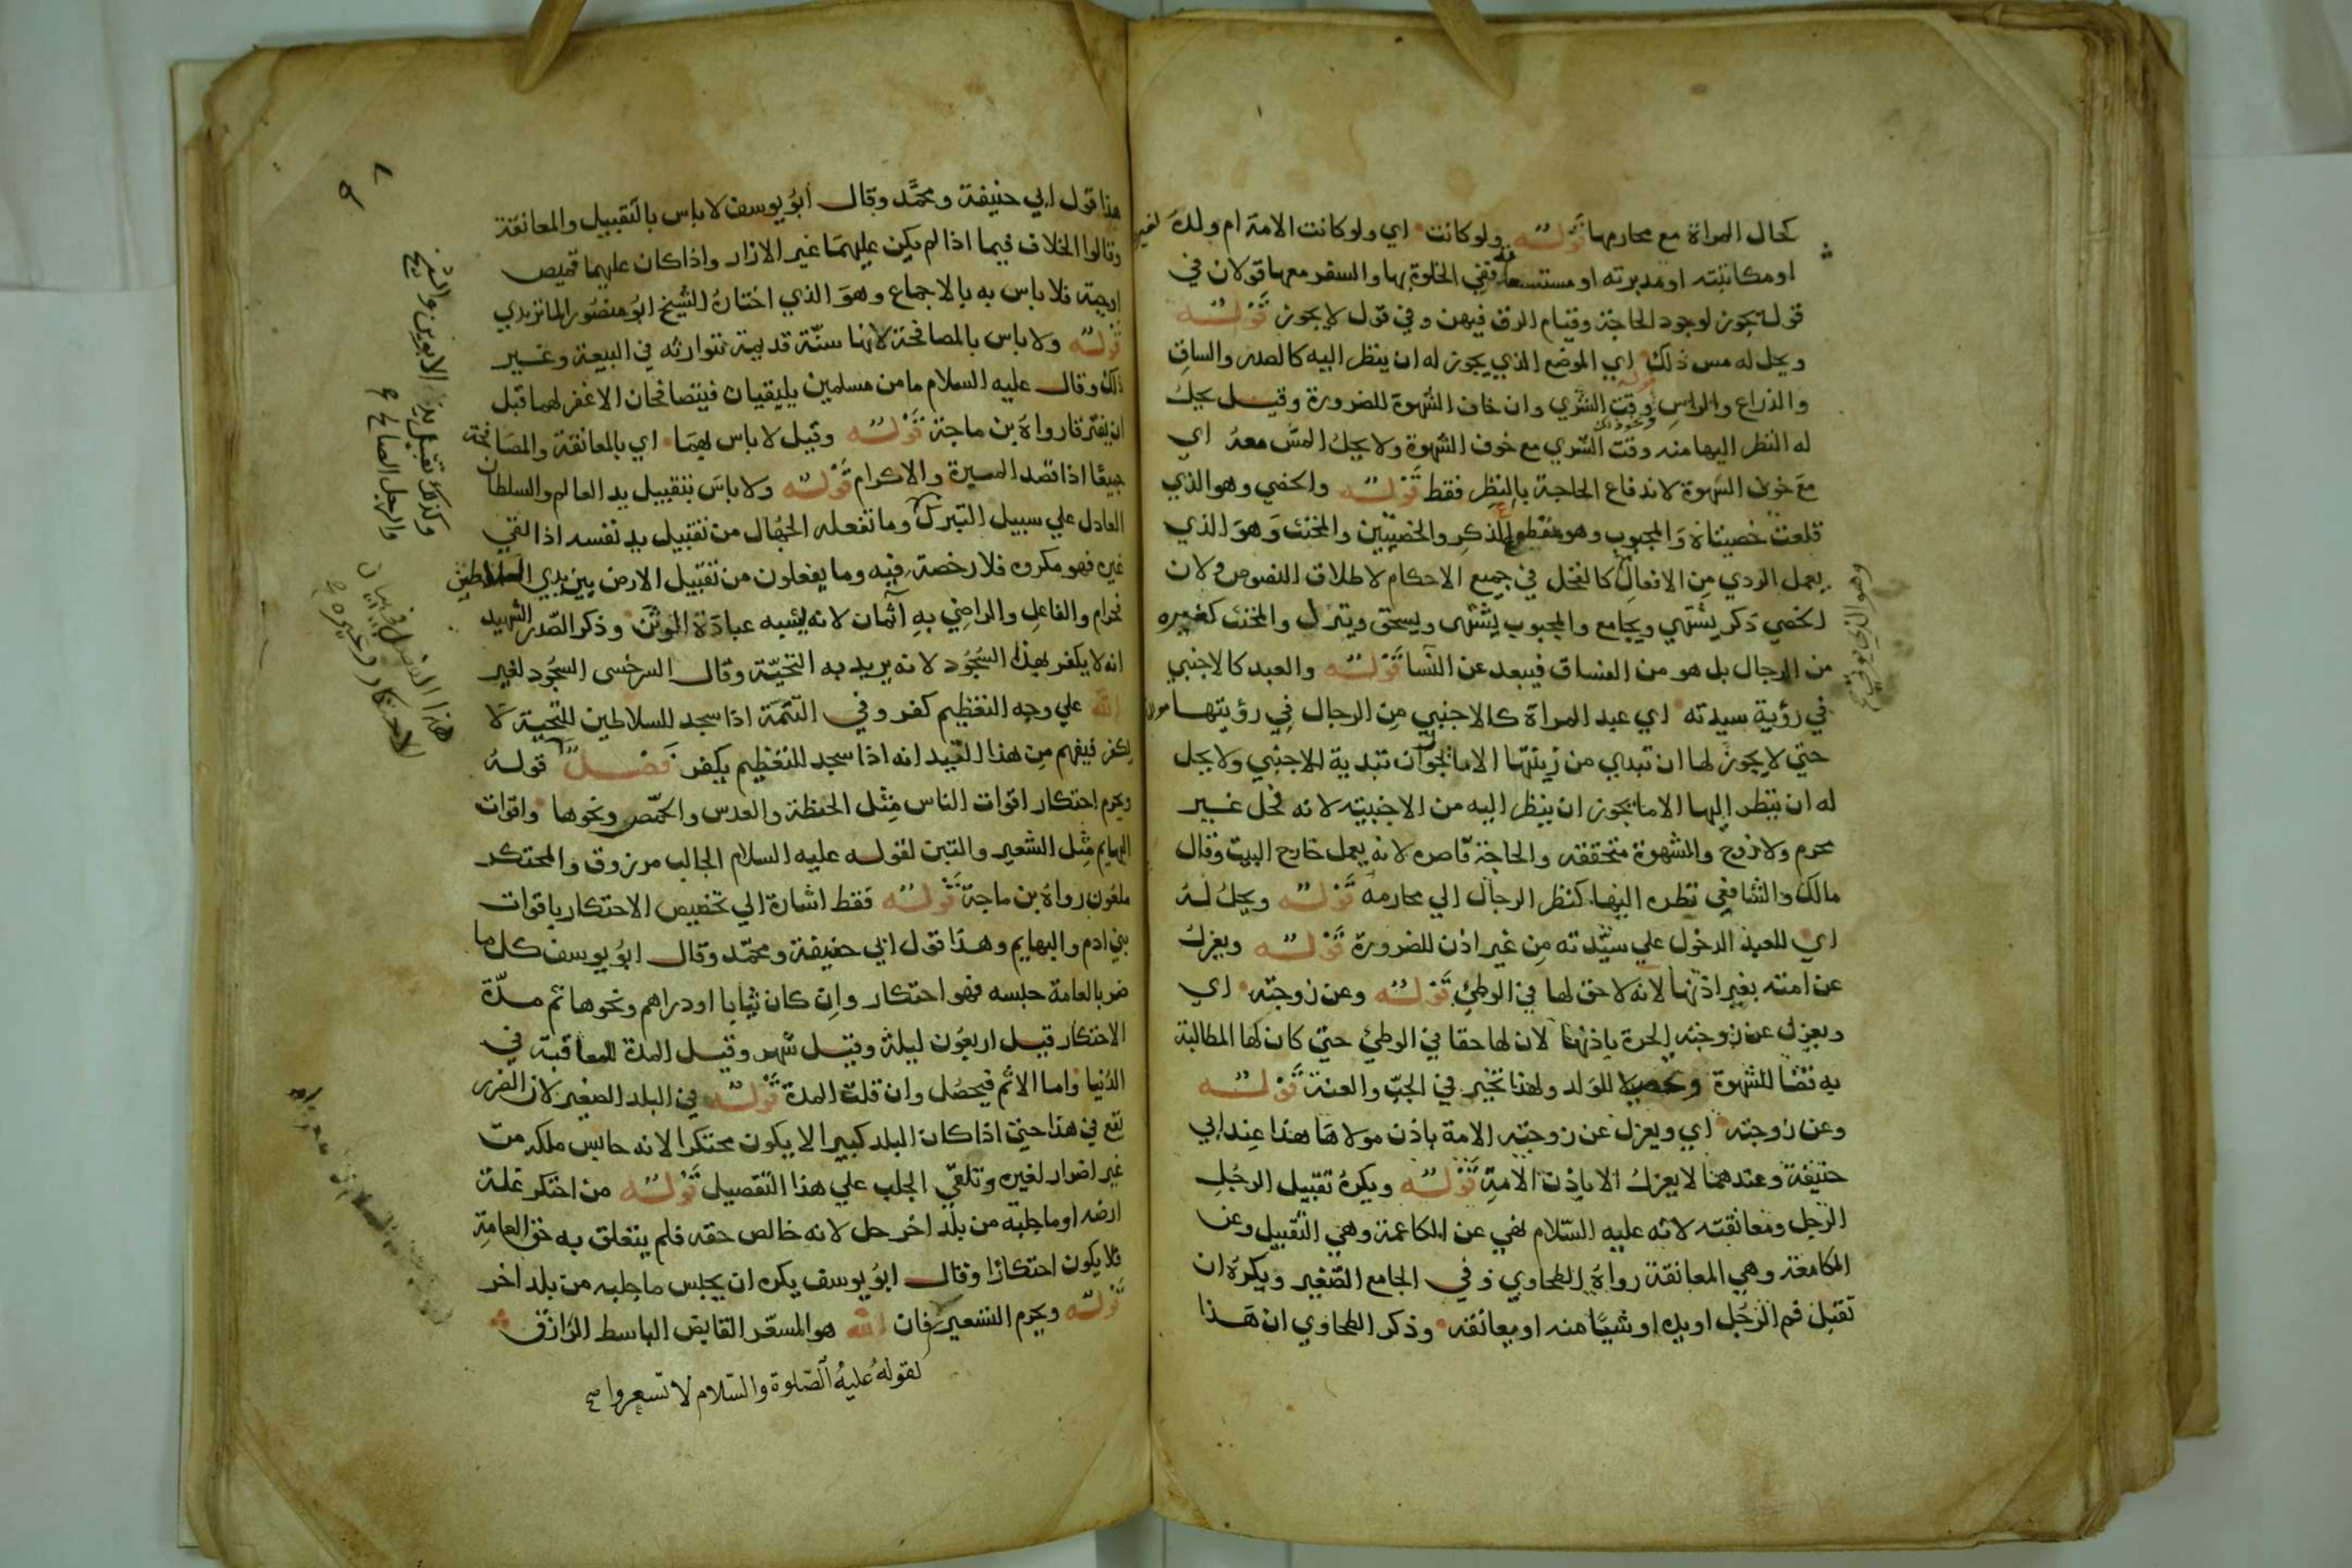 كحال المراة مع محارمها قوله ولو كانت اي ولو كانت الامة ام ولد لغيره
او مكاتبته او مدبرته او مستسعاة ففي الخلوة بها والسفر معها قولان في
قول يجوز لوجود الحاجة وقيام الرق فيهن وفي قول لا يجوز قوله
ويحل له مس ذلك اي الموضع الذي يجوز له ان ينظر اليه كالصدر والساق
والذراع والراس وقت الشري وان خاف الشهوة للضرورة وقيل يحل
له النظر اليها منه وقت الشري مع خوف الشهوة ولا يحل المس معه اي
مع خوف الشهوة لاندفاع الحاجة بالنظر فقط قوله والخصي وهو الذي
قلعت خصيتاه والمجبوب وهو مقطوع الذكر والخصيتين والمخنث وهو الذي
يعمل الردي من الافعال كالفحل في جميع الاحكام لاطلاق النصوص ولان
الخصي ذكر يشتهي ويجامع والمجبوب يشتهى ويسحق وينزل والمخنث كغيره
من الرجال بل هو من الفساق فيبعد عن النسا قوله والعبد كالاجنبي
في رؤية سيدته اي عبد المراة كالاجنبي من الرجال في رؤيتها
حتى لا يجوز لها ان تبدي من زينتها الا ما يجوز ان تبديه للاجنبي ولا يحل
له ان ينظر اليها الا ما يجوز ان ينظر اليه من الاجنبيه لانه فحل غير
محرم ولا زوج والشهوة متحققه والحاجة قاصره لانه يعمل خارج البيت وقال
مالك والشافعي نظره اليها كنظر الرجال الي محارمه قوله ويحل له
اي للعبد الدخول علي سيدته من غير اذن للضرورة قوله ويعزل
عن امته بغير اذنها لانه لا حق لها في الوطئ قوله وعن زوجته اي
ويعزل عن زوجته الحرة باذنها لان لها حقا في الوطئ حتى كان لها المطالبة
به قضا للشهوة وتحصيلا للولد ولهذا تخير في الجب والعنة قوله
وعن زوجته اي ويعزل عن زوجته الامة باذن مولاها هذا عند ابي
حنيفة وعندهما لا يعزل الا باذن الامة قوله ويكره تقبيل الرجل
الرجل ومعانقته لانه عليه السلام نهي عن المكاعمة وهي التقبيل وعن
المكامعة وهي المعانقة رواه الطحاوي وفي الجامع الصغير ويكره ان
تقبل فم الرجل او يده او شيئا منه او يعانقه وذكر الطحاوي ان هذا
وهو الذي يوتى
٩٨
هذا قول ابي حنيفة ومحمد وقال ابو يوسف لا باس بالتقبيل والمعانقة
وقالوا الخلاف فيما اذا لم يكن عليهما غير الازار واذا كان عليهما قميص
او جبة فلا باس به بالاجماع وهو الذي اختاره الشيخ ابو منصور الماتريدي
قوله ولا باس بالمصافحة لانها سنة قديمة متوارثه في البيعة وغير
ذلك وقال عليه السلام ما من مسلمين يلتقيان فيتصافحان الا غفر لهما قبل
ان يفترقا رواه بن ماجة قوله وقيل لا باس بهما اي بالمعانقة والمصافحة
جميعا اذا قصد المبرة والاكرام قوله ولا باس بتقبيل يد العالم والسلطان
العادل علي سبيل التبرك وما تفعله الجهال من تقبيل يد نفسه اذا القي
غيره فهو مكروه فلا رخصة فيه وما يفعلون من تقبيل الارض بين يدي السلاطين
فحرام والفاعل والراضي به آثمان لانه يشبه عبادة الوثن وذكر الصدر الشهيد
انه لا يكفر بهذا السجود لانه يريد به التحية وقال السرخسى السجود لغير
الله علي وجه التعظيم كفر وفي التتمة اذا سجد للسلاطين للتحية لا
يكفر فيفهم من هذا القيد انه اذا سجد للتعظيم يكفر فصل قوله
ويحرم احتكار اقوات الناس مثل الحنطة والعدس والحمص ونحوها واقوات
البهايم مثل الشعير والتبن لقوله عليه السلام الجالب مرزوق والمحتكر
ملعون رواه بن ماجة قوله فقط اشارة الي تخصيص الاحتكار باقوات
بني ادم والبهايم وهذا قول ابي حنيفة ومحمد وقال ابو يوسف كل ما
ضر بالعامة حبسه فهو احتكار وان كان ثيابا او دراهم ونحوها ثم مدة
الاحتكار قيل اربعون ليلة وقيل شهر وقيل المدة للمعاقبة في
الدنيا واما الاثم فيحصل وان قلت المدة قوله في البلد الصغير لان الضرر
يقع في هذا حتى اذا كان البلد كبيرا لا يكون محتكرا لانه حابس ملكه من
غير اضرار لغيره وتلقي الجلب علي هذا التفصيل قوله من احتكر غلة
ارضه او ما جلبه من بلد اخر حل لانه خالص حقه فلم يتعلق به حق العامة
فلا يكون احتكارا وقال ابو يوسف يكره ان يحبس ما جلبه من بلد اخر
قوله ويحرم التسعير فان الله هو المسعر القابض الباسط الرازق
لقوله عليه الصلوة والسلام لا تسعروا صح
وكذلك تقبيل يد الابوين والشيخ
والرجل الصالح
هذا الفصل في بيان
الاحتكار وغيره